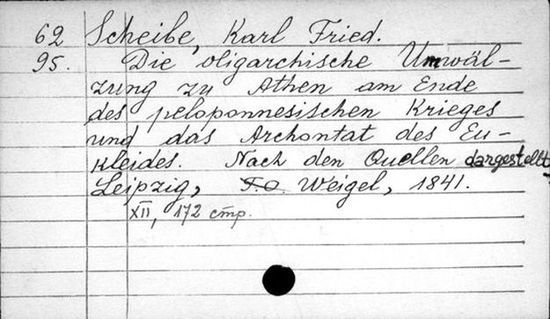 62 Scheibe, Karl Fried.
95. Die oligarchische Umwäl-
zung zu Athen am Ende
des peloponnesischen Krieges
und das Archontat des Eu-
kleides. Nach den Quellen dargestellt.
Leipzig, T.O. Weigel, 1841.
XII, 172 стр.